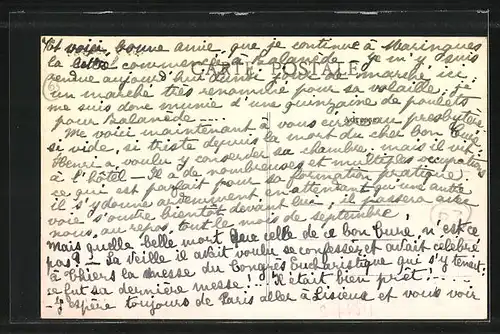 Et voici, bonne amie, que je continue à Maringues
la lettre commencée à Balanède. je m'y suis
rendue aujourd'hui lundi, jour de marché ici,
un marché très renommé pour sa volaille; je
me suis donc munie d'une quinzaine de poulets
pour Balanède....
CARTE POSTALE
Me voici maintenant à vous au presbytère
si vide, si triste depuis la mort du cher bon Curé.
Henri a voulu y conserver sa chambre, mais il vit
à l'hôtel - Il a de nombreuses et multiples occupations
ce qui est parfait pour sa formation pratique;
il s'y donne ardemment en attendant qu'une autre
voie s'ouvre bientôt devant lui; il passera avec
nous, au repos, tout le mois de septembre
mais quelle belle mort que celle de ce bon Curé, n'est-ce
pas? - La veille il avait voulu se confesser et avait célébré
à Thiers la messe du Congrès Eucharistique qui s'y tenait:
ce fut sa dernière messe!... Il était bien prêt!....
- J'espère toujours de Paris aller à Lisieux et vous voir